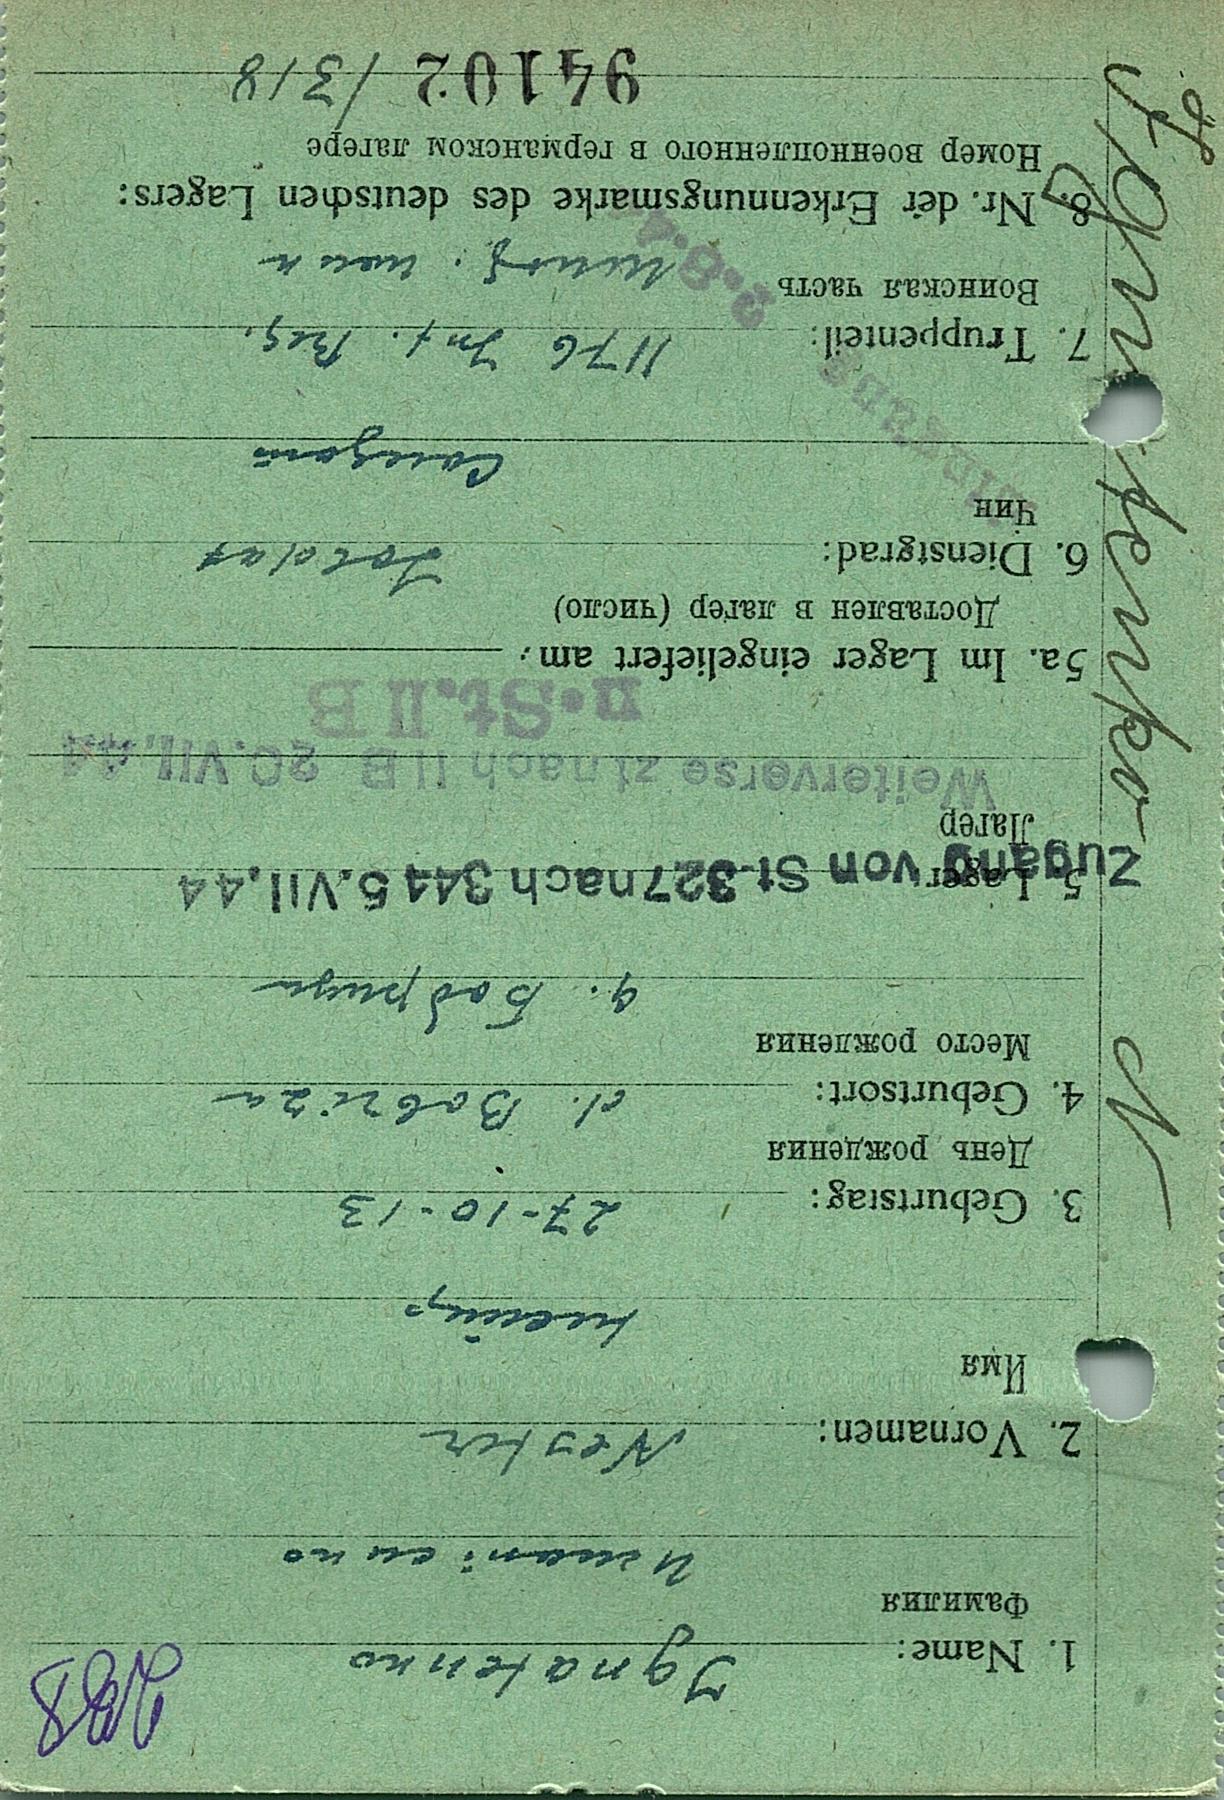 1. Name: Ignatenko
Фамилия
Игнатенко
2. Vornamen: Nester
Имя
Нестер
3. Geburtstag: 27-10-13
День рождения
4. Geburtsort: d. Bobriza
Место рождения
д. Бобрица
5 Lager
Zugang von St-327 nach 344 5.VII.44
Лагер
Weiterverse zt nach II B 20.VII.44
St. II B
5a. Im Lager eingeliefert am:
Доставлен в лагер (число)
6. Dienstgrad: Soldat
Чин
Солдат
7. Truppenteil: 1176 Inf. Reg.
Воинская часть
8. Nr. der Erkennungsmarke des deutschen Lagers:
Номер военнопленного в германском лагере
94102 / 318